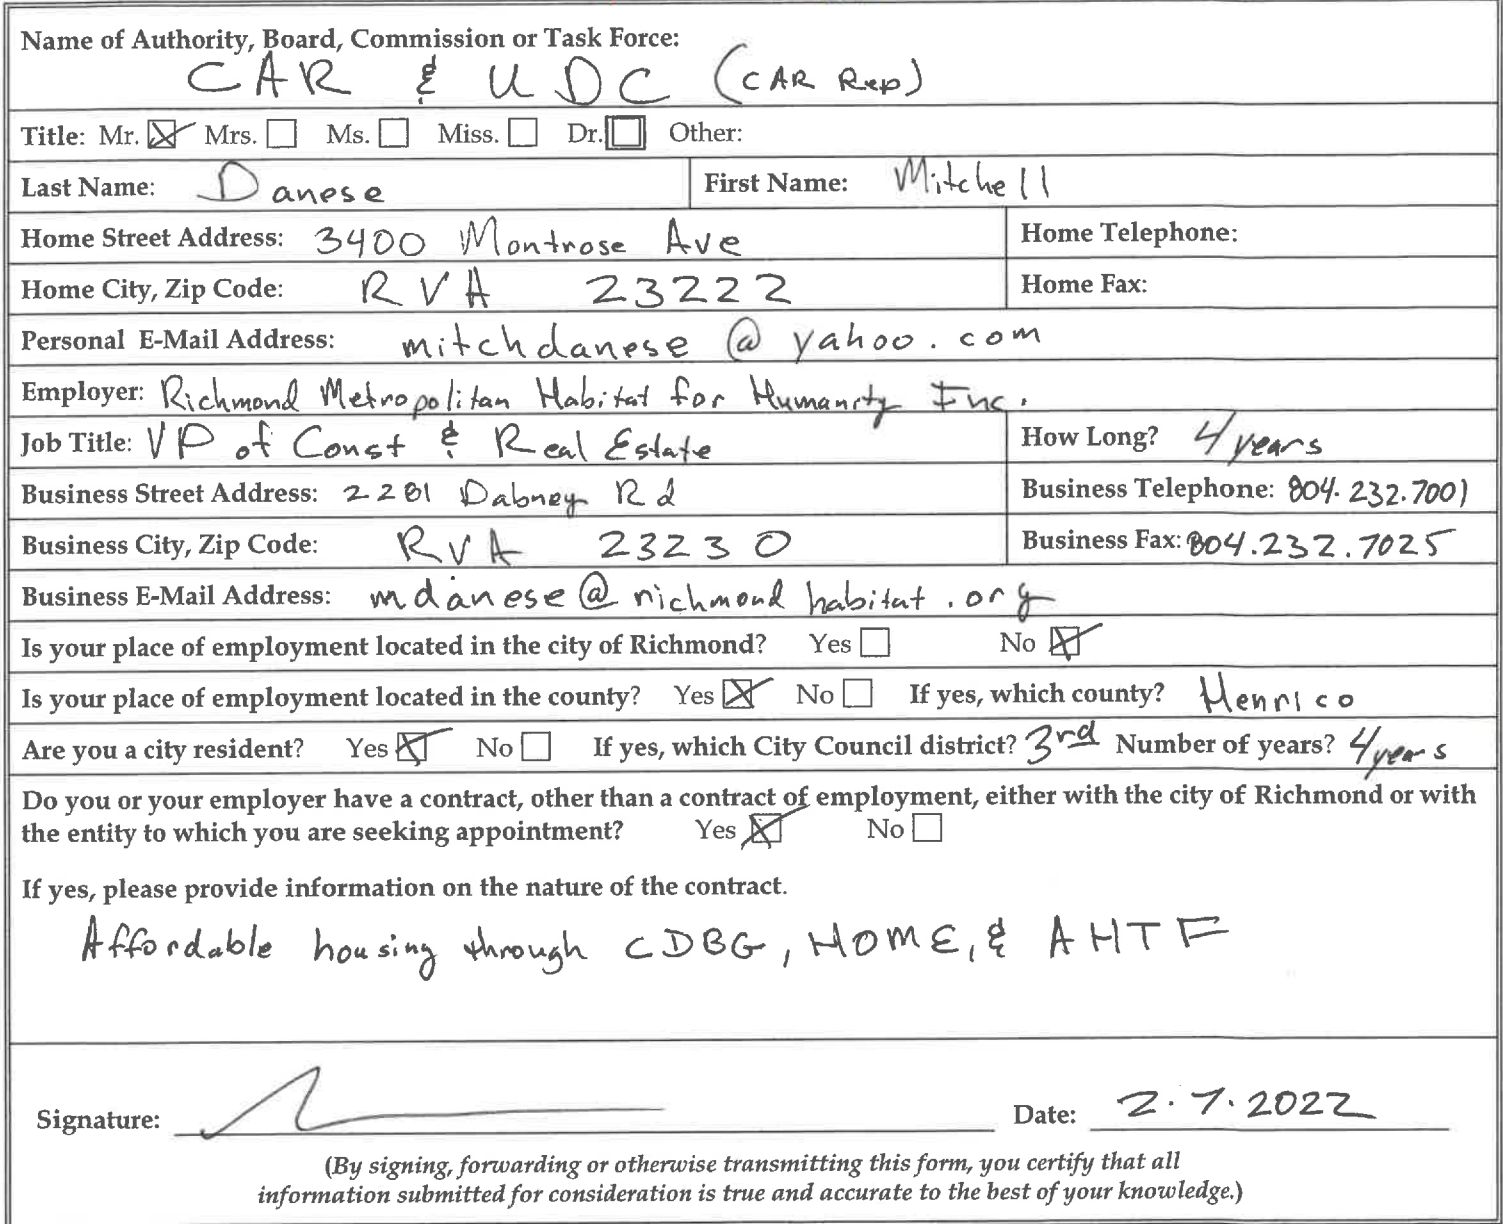 Name of Authority, Board, Commission or Task Force:
CAR & UDC (CAR Rep)
Title: Mr. ☒ Mrs. ☐ Ms. ☐ Miss. ☐ Dr. ☐ Other:
Last Name: Danese First Name: Mitchell
Home Street Address: 3400 Montrose Ave Home Telephone:
Home City, Zip Code: RVA 23222 Home Fax:
Personal E-Mail Address: mitchdanese@yahoo.com
Employer: Richmond Metropolitan Habitat for Humanity Inc.
Job Title: VP of Const & Real Estate How Long? 4 years
Business Street Address: 2281 Dabney Rd Business Telephone: 804.232.7001
Business City, Zip Code: RVA 23230 Business Fax: 804.232.7025
Business E-Mail Address: mdanese@richmondhabitat.org
Is your place of employment located in the city of Richmond? Yes ☐ No ☒
Is your place of employment located in the county? Yes ☒ No ☐ If yes, which county? Henrico
Are you a city resident? Yes ☒ No ☐ If yes, which City Council district? 3rd Number of years? 4 years
Do you or your employer have a contract, other than a contract of employment, either with the city of Richmond or with
the entity to which you are seeking appointment? Yes ☒ No ☐
If yes, please provide information on the nature of the contract.
Affordable housing through CDBG, HOME, & AHTF
Signature: Date: 2.7.2022
(By signing, forwarding or otherwise transmitting this form, you certify that all
information submitted for consideration is true and accurate to the best of your knowledge.)